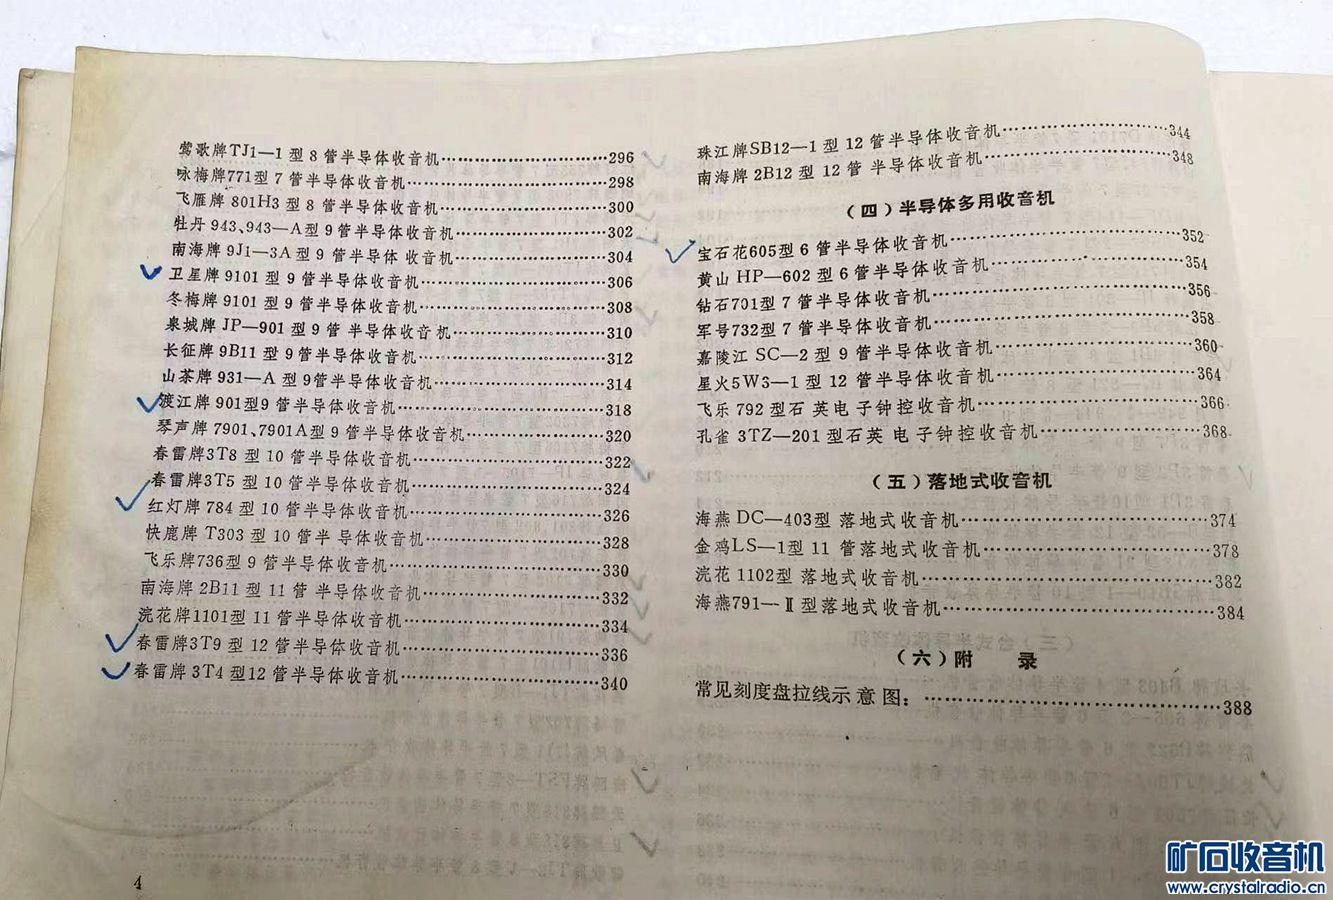 莺歌牌TJ1—1型8管半导体收音机……………………296
咏梅牌771型7管半导体收音机……………………298
飞雁牌801H3型8管半导体收音机……………………300
牡丹943、943—A型9管半导体收音机……………………302
南海牌9J1—3A型9管半导体收音机……………………304
卫星牌9101型9管半导体收音机……………………306
冬梅牌9101型9管半导体收音机……………………308
泉城牌JP—901型9管半导体收音机……………………310
长征牌9B11型9管半导体收音机……………………312
山茶牌931—A型9管半导体收音机……………………314
渡江牌901型9管半导体收音机……………………318
琴声牌7901、7901A型9管半导体收音机……………………320
春雷牌3T8型10管半导体收音机……………………322
春雷牌3T5型10管半导体收音机……………………324
红灯牌784型10管半导体收音机……………………326
快鹿牌T303型10管半导体收音机……………………328
飞乐牌736型9管半导体收音机……………………330
南海牌2B11型11管半导体收音机……………………332
浣花牌1101型11管半导体收音机……………………334
春雷牌3T9型12管半导体收音机……………………336
春雷牌3T4型12管半导体收音机……………………340
4
珠江牌SB12—1型12管半导体收音机……………………344
南海牌2B12型12管半导体收音机……………………348
(四)半导体多用收音机
宝石花605型6管半导体收音机……………………352
黄山HP—602型6管半导体收音机……………………354
钻石701型7管半导体收音机……………………356
军号732型7管半导体收音机……………………358
嘉陵江SC—2型9管半导体收音机……………………360
星火5W3—1型12管半导体收音机……………………364
飞乐792型石英电子钟控收音机……………………366
孔雀3TZ—201型石英电子钟控收音机……………………368
(五)落地式收音机
海燕DC—403型落地式收音机……………………374
金鸡LS—1型11管落地式收音机……………………378
浣花1102型落地式收音机……………………382
海燕791—Ⅱ型落地式收音机……………………384
(六)附 录
常见刻度盘拉线示意图:……………………388
矿石收音机
www.crystalradio.cn